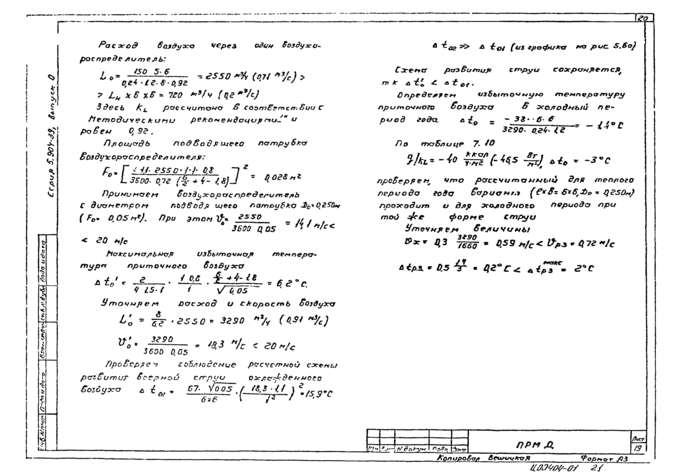 20
Расход воздуха через один воздухо-
распределитель:
L₀ = 150·5·6 / 0,24·1,2·8·0,92 = 2550 м³/ч (0,71 м³/с) >
> Lн × 6 × 6 = 720 м³/ч (0,2 м³/с)
Здесь KL рассчитана в соответствии с
Методическими рекомендациями и
равен 0,92.
Площадь подводящего патрубка
воздухораспределителя:
= 0,028 м²
Принимаем воздухораспределитель
с диаметром подводящего патрубка D₀=0,250м
(F₀ = 0,05 м²). При этом V₀ = 2550 / 3600·0,05 = 14,1 м/с <
< 20 м/с
Максимальная избыточная темпера-
тура приточного воздуха
= 6,2°С.
Уточняем расход и скорость воздуха
L₀' = 8/6,2 · 2550 = 3290 м³/ч (0,91 м³/с)
V₀' = 3290 / 3600·0,05 = 18,3 м/с < 20 м/с
Проверяем соблюдение расчетной схемы
развития веерной струи охлажденного
воздуха Δt₀₁ = 67·√0,05 / 6×6 · (18,3·1,1 / 1²)² = 15,9°С
Δt₀₂ >> Δt₀₁ (из графика на рис. 5,60)
Схема развития струи сохраняется,
т.к Δt₀' < Δt₀₁.
Определяем избыточную температуру
приточного воздуха в холодный пе-
риод года
По таблице 7.10
q/kL = -40 ккал/ч·м² (-46,5 Вт/м²), Δt₀ = -3°С
проверяем, что рассчитанный для теплого
периода года вариант (ℓ×в= 6×6, D₀ = 0,250м)
проходит и для холодного периода при
той же форме струи
Уточняем величины
Vх = 0,3 3290/1660 = 0,59 м/с < Vрз = 0,72 м/с
Δtрз = 0,5 1,9/3 = 0,2°С < Δtрз макс = 2°С
Серия 5.904-39, выпуск 0
ПРМ Д
Лист
19
Копировал Вешицкая Формат А3
21